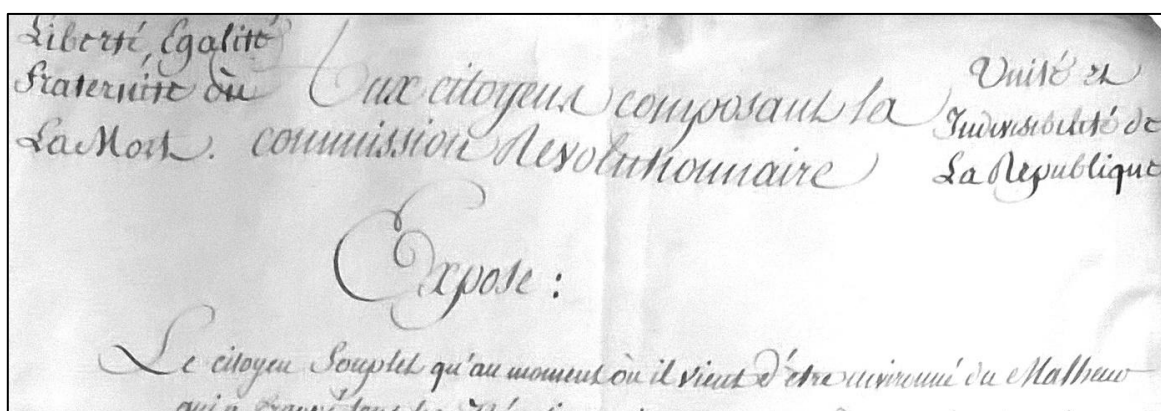 Liberté, Egalité
Fraternité où
La Mort.
Aux citoyens composant la
commission Révolutionnaire
Unité et
Indivisibilité de
La République
Expose :
Le citoyen Souplet qu'au moment où il vient d'être environné du Malheur
qui a